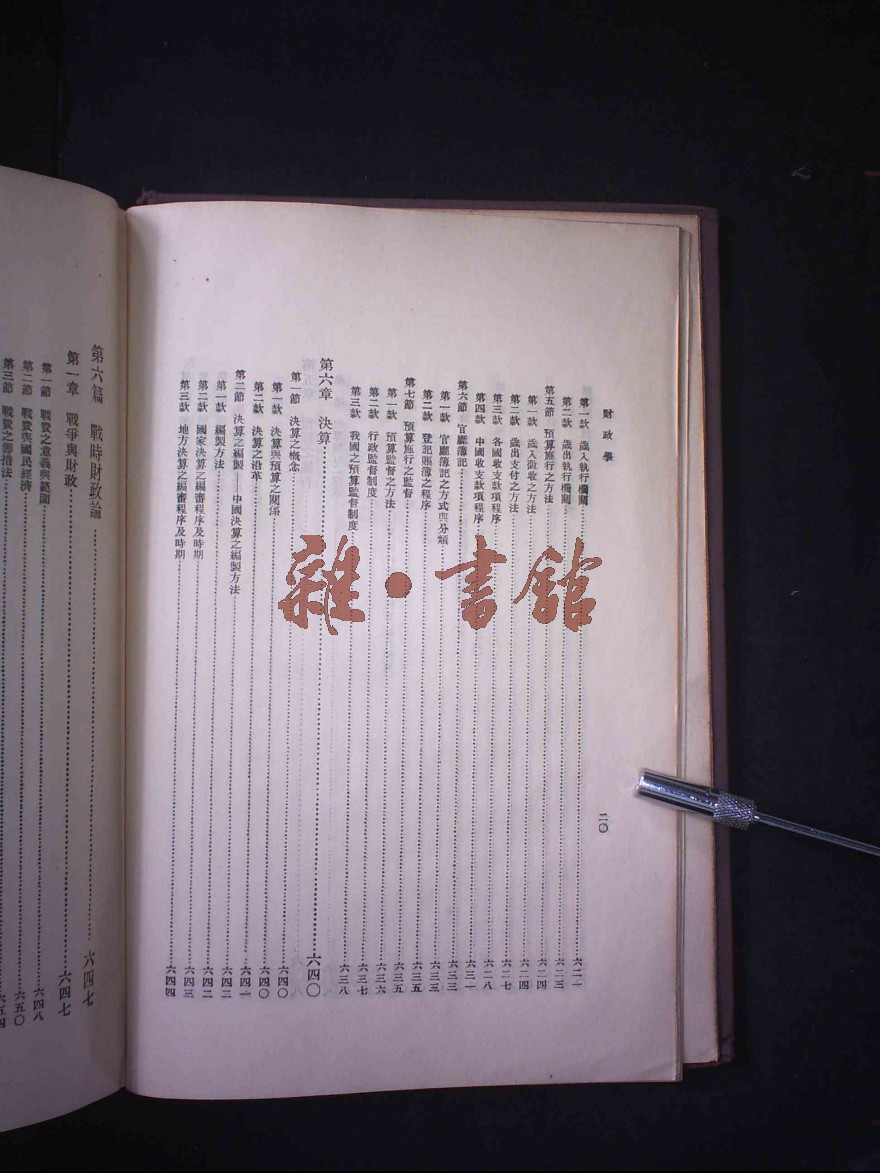 財政學 二〇
第一款 歲入執行機關 六二一
第二款 歲出執行機關 六二三
第五節 預算施行之方法 六二四
第一款 歲入徵收之方法 六二四
第二款 歲出支付之方法 六二七
第三款 各國收支款項程序 六二八
第四款 中國收支款項程序 六三一
第六節 官廳簿記 六三三
第一款 官廳簿記之方式與分類 六三三
第二款 登記賬簿之程序 六三五
第七節 預算施行之監督 六三五
第一款 預算監督之方法 六三六
第二款 行政監督制度 六三七
第三款 我國之預算監督制度 六三八
第六章 決算 六四〇
第一節 決算之概念 六四〇
第一款 決算與預算之關係 六四〇
第二款 決算之沿革 六四一
第二節 決算之編製——中國決算之編製方法 六四二
第一款 編製方法 六四二
第二款 國家決算之編審程序及時期 六四三
第三款 地方決算之編審程序及時期 六四四
第六篇 戰時財政論 六四七
第一章 戰爭與財政 六四七
第一節 戰費之意義與範圍 六四八
第二節 戰費與國民經濟 六五〇
第三節 戰費之籌措法 六五四
雜·書館